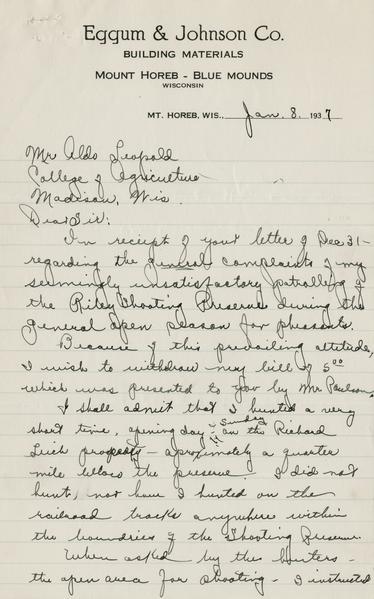 Eggum & Johnson Co.
BUILDING MATERIALS
MOUNT HOREB - BLUE MOUNDS
WISCONSIN
MT. HOREB, WIS., Jan. 8. 1937
Mr Aldo Leopold
College of Agriculture
Madison, Wis.
Dear Sir:
In receipt of your letter of Dec 31-
regarding the general complaints of my
seemingly unsatisfactory patrolling of
the Riley Shooting Preserve during the
general open season for pheasants.
Because of this prevailing attitude,
I wish to withdraw my bill of 5 00
which was presented to you by Mr Paulson.
I shall admit that I hunted a very
short time, opening day - Sunday - on the Richard
property - aproximately a quarter
mile the preserve. I did not
hunt, nor have I hunted on the
railroad tracks anywhere within
the boundries of the Shooting Preserve.
When asked by the hunters -
the open area for shooting - I instructed